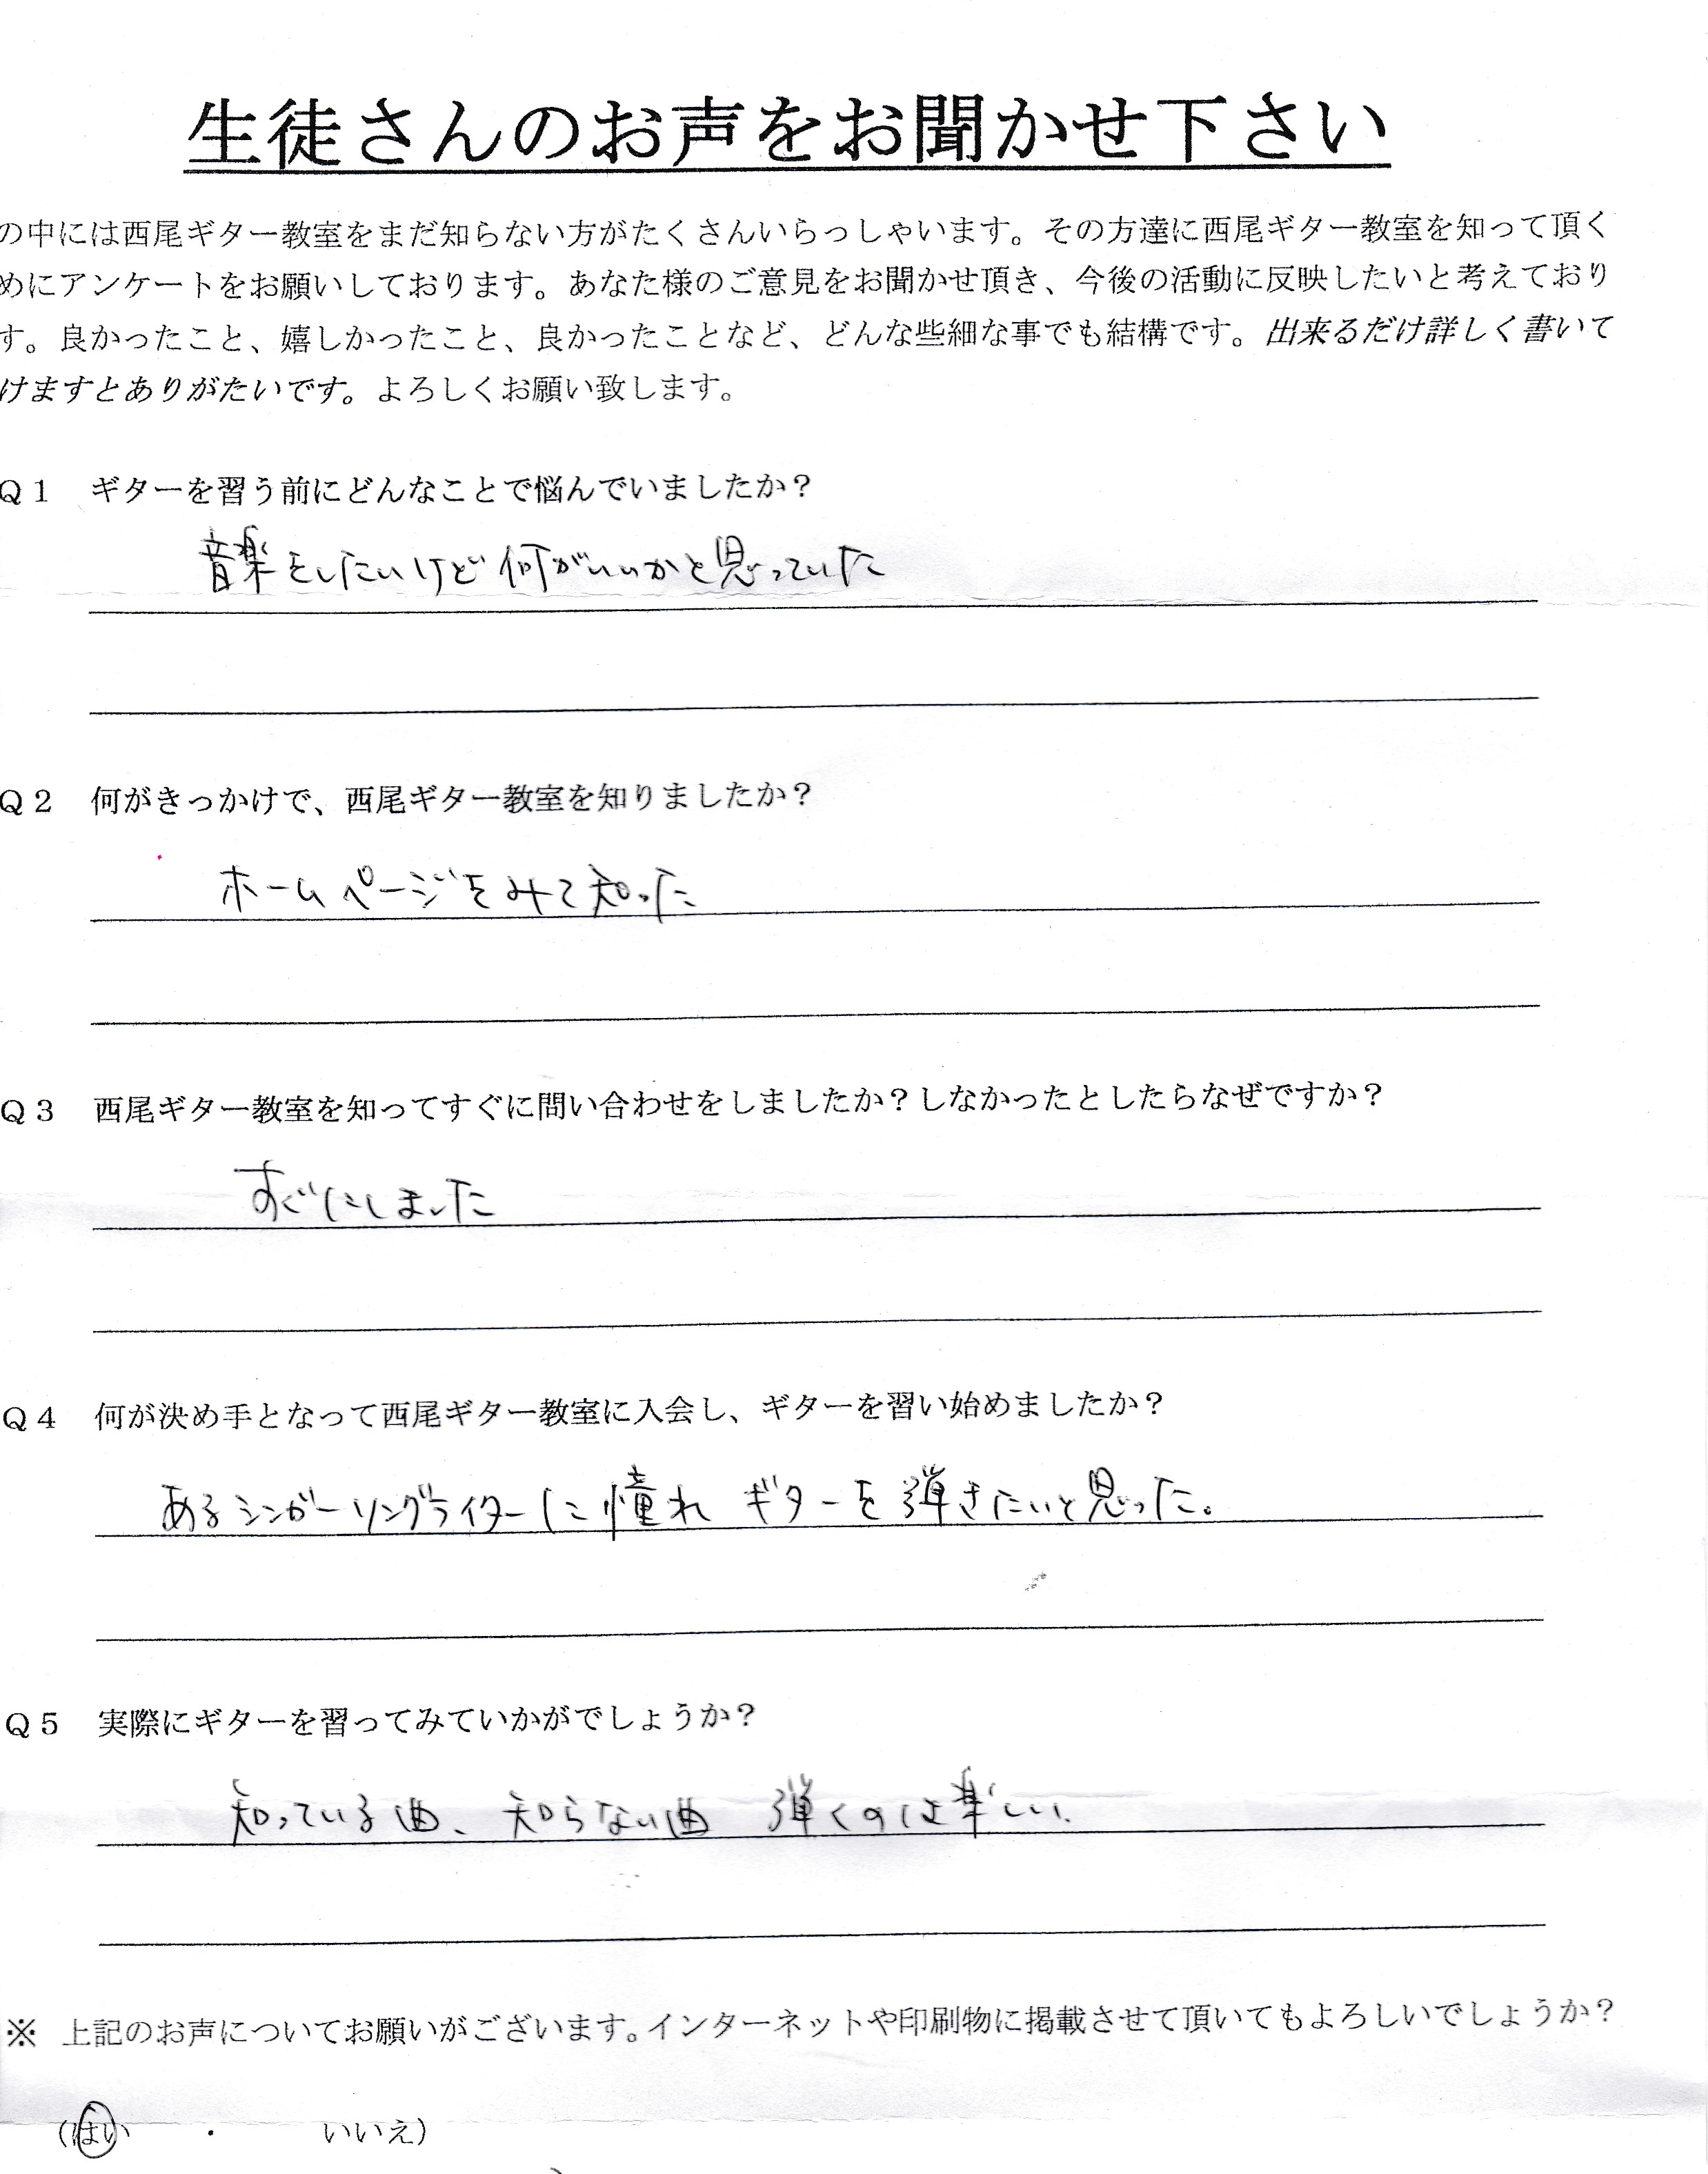 生徒さんのお声をお聞かせ下さい
の中には西尾ギター教室をまだ知らない方がたくさんいらっしゃいます。その方達に西尾ギター教室を知って頂く
めにアンケートをお願いしております。あなた様のご意見をお聞かせ頂き、今後の活動に反映したいと考えており
す。良かったこと、嬉しかったこと、良かったことなど、どんな些細な事でも結構です。出来るだけ詳しく書いて
けますとありがたいです。よろしくお願い致します。
Q1 ギターを習う前にどんなことで悩んでいましたか？
音楽をしたいけど何がいいかと思っていた
Q2 何がきっかけで、西尾ギター教室を知りましたか？
ホームページをみて知った
Q3 西尾ギター教室を知ってすぐに問い合わせをしましたか？しなかったとしたらなぜですか？
すぐにしました
Q4 何が決め手となって西尾ギター教室に入会し、ギターを習い始めましたか？
あるシンガーソングライターに憧れ ギターを弾きたいと思った。
Q5 実際にギターを習ってみていかがでしょうか？
知っている曲、知らない曲 弾くのは楽しい。
※ 上記のお声についてお願いがございます。インターネットや印刷物に掲載させて頂いてもよろしいでしょうか？
（はい ・ いいえ）